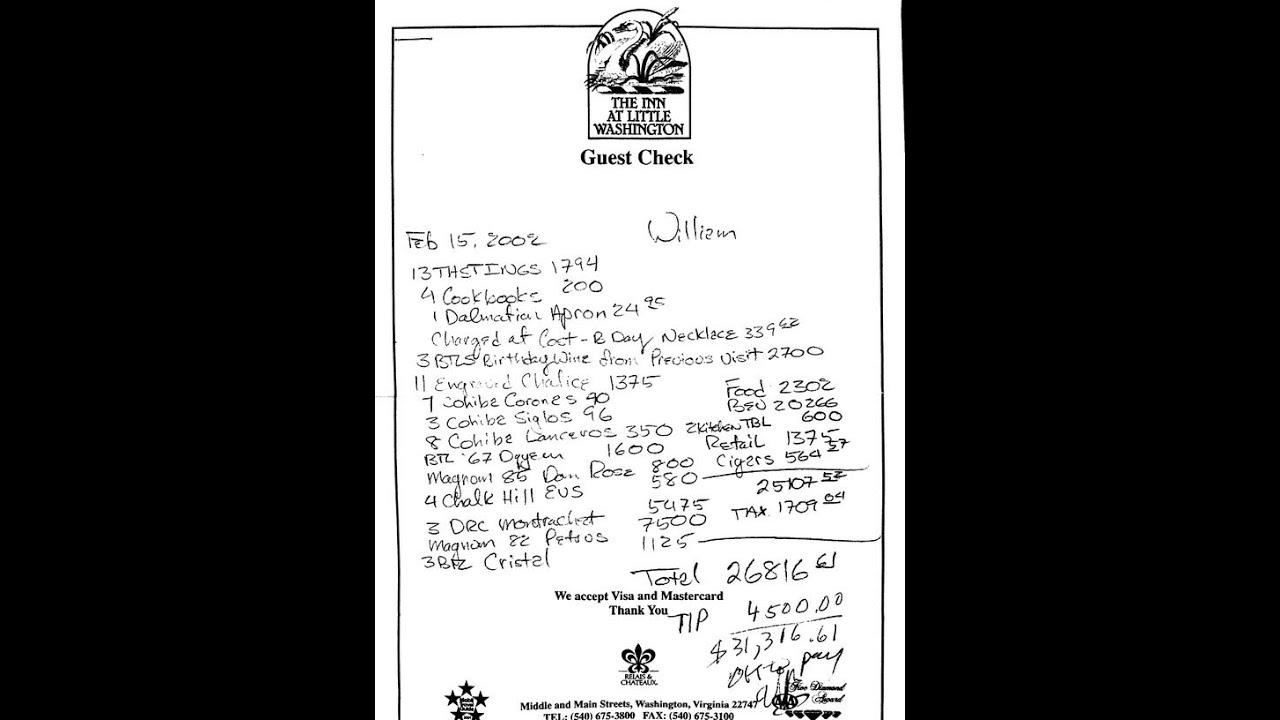 THE INN
AT LITTLE
WASHINGTON
Guest Check
William
Feb 15, 2002
13 TASTINGS 1794
4 Cookbooks 200
1 Dalmatian Apron 24 95
Charged at Cost - B Day Necklace 339 62
3 BTLS Birthday Wine from Previous Visit 2700
11 Engraved Chalice 1375
7 Cohiba Corones 90
3 Cohiba Siglos 96
8 Cohiba Lanceros 350
BTL '67 Dqyem 1600
Magnum 85 Dom Rose 800
4 Chalk Hill EVS 580
3 DRC Montrachet 5475
Magnum 82 Petrus 7500
3 Btl Cristal 1125
Food 2302
BEV 20266
2 Kitchen TBL 600
Retail 1375
Cigars 564 57
25107 52
TAX 1709 04
Total 26816 61
We accept Visa and Mastercard
Thank You
TIP 4500.00
$31,316.61
OK to pay
RELAIS &
CHATEAUX
Five Diamond
Award
AAA
Middle and Main Streets, Washington, Virginia 22747
TEL: (540) 675-3800 FAX: (540) 675-3100